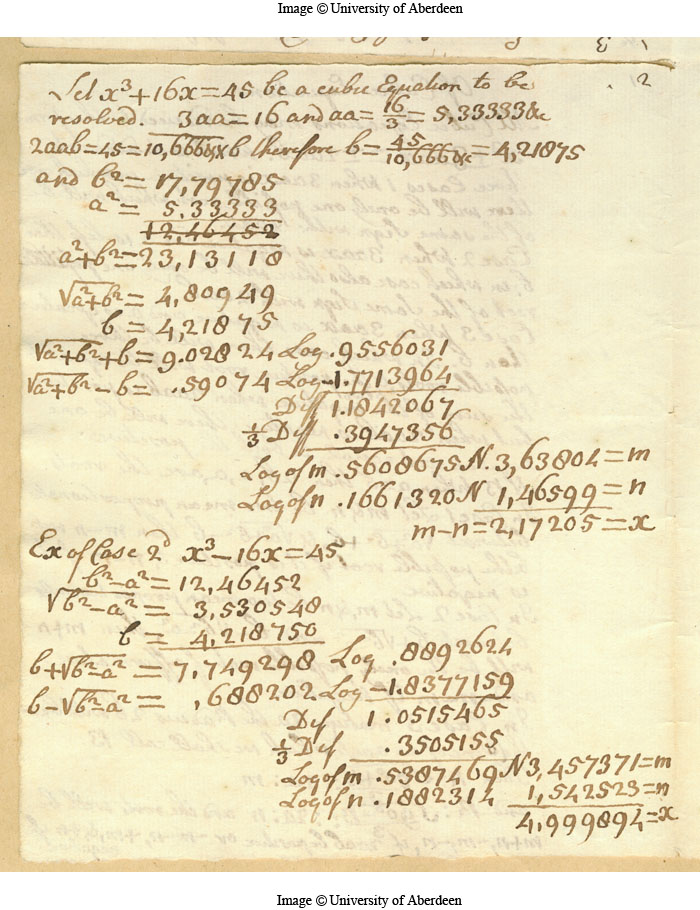 Image © University of Aberdeen
2
Let x³+16x=45 be a cubic Equation to be
resolved. 3aa=16 and aa= 16/3 = 5,33333&c
2aab=45=10,666&c×b therefore b= 45/10,666&c = 4,21875
and b²= 17,79785
a²= 5.33333
12,46452
a²+b²=23,13118
√a²+b²= 4,80949
b= 4,21875
√a²+b²+b= 9.02824 Log .9556031
√a²+b²-b= .59074 Log -1.7713964
Diff 1.1842067
1/3 Diff .3947356
Log of m .5608675 N. 3,63804=m
Log of n .1661320 N 1,46599=n
m-n=2,17205=x
Ex of Case 2d x³-16x=45
b²-a²=12,46452
√b²-a²= 3,530548
b= 4,218750
b+√b²-a²= 7,749298 Log .8892624
b-√b²-a²= ,688202 Log -1.8377159
Dif 1.0515465
1/3 Dif .3505155
Log of m .5387469 N 3,457371=m
Log of n .1882314 1,542523=n
4,999894=x
Image © University of Aberdeen